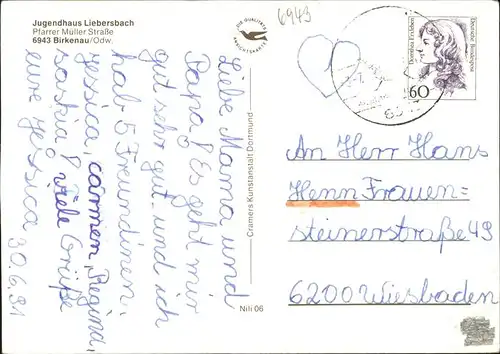 Jugendhaus Liebersbach
Pfarrer Müller Straße
6943 Birkenau/Odw.
DIE QUALITÄTS
ANSICHTSKARTE
6943
Deutsche Bundespost
Dorothea Erxleben
60
Liebe Mama und
Papa! Es geht mir
gut sehr gut und ich
hab 5 Freundinen.
Jessica, carmen, Regina,
saskia! viele Grüße
eure Jessica
30.6.91
Cramers Kunstanstalt Dortmund
Nili 06
An Herr Hans
Henn Frauen=
steinerstraße 49
6200 Wiesbaden